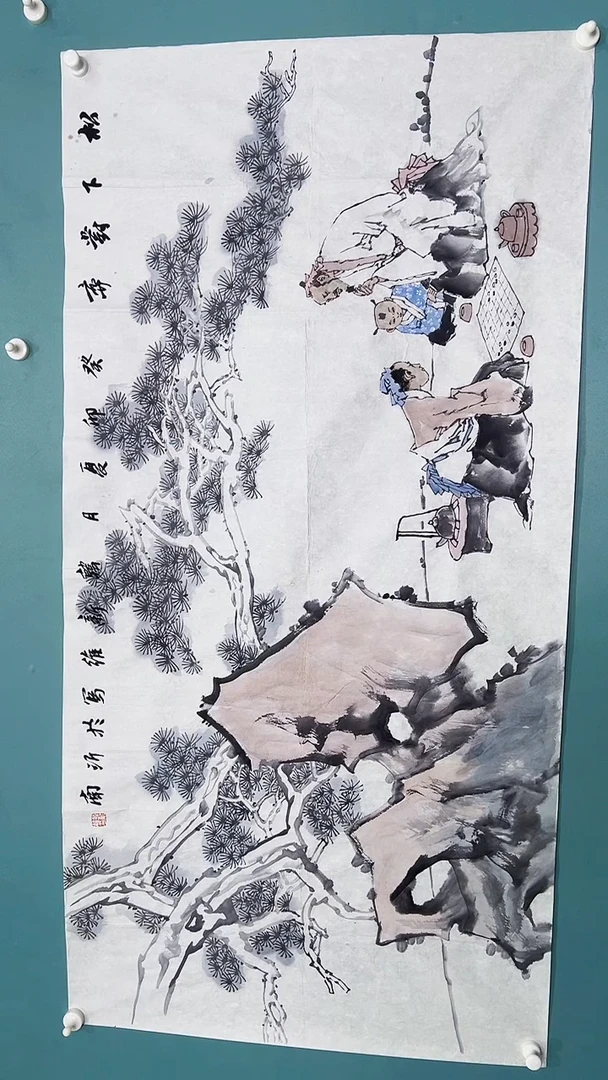 松下對弈癸卯夏月 新維寫於沂南